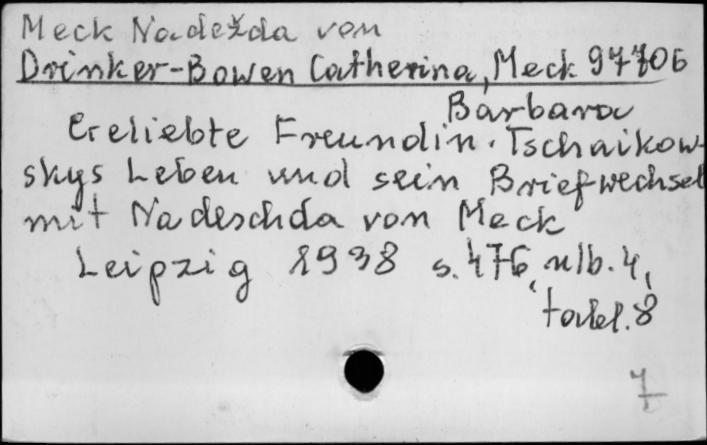 Meck Nadežda von
Drinker-Bowen Catherina, Meck 97706
Barbara
Geliebte Freundin. Tschaikow-
skys Leben und sein Briefwechsel
mit Nadeschda von Meck
Leipzig 1938 s. 476, alb. 4,
tabel. 8
7